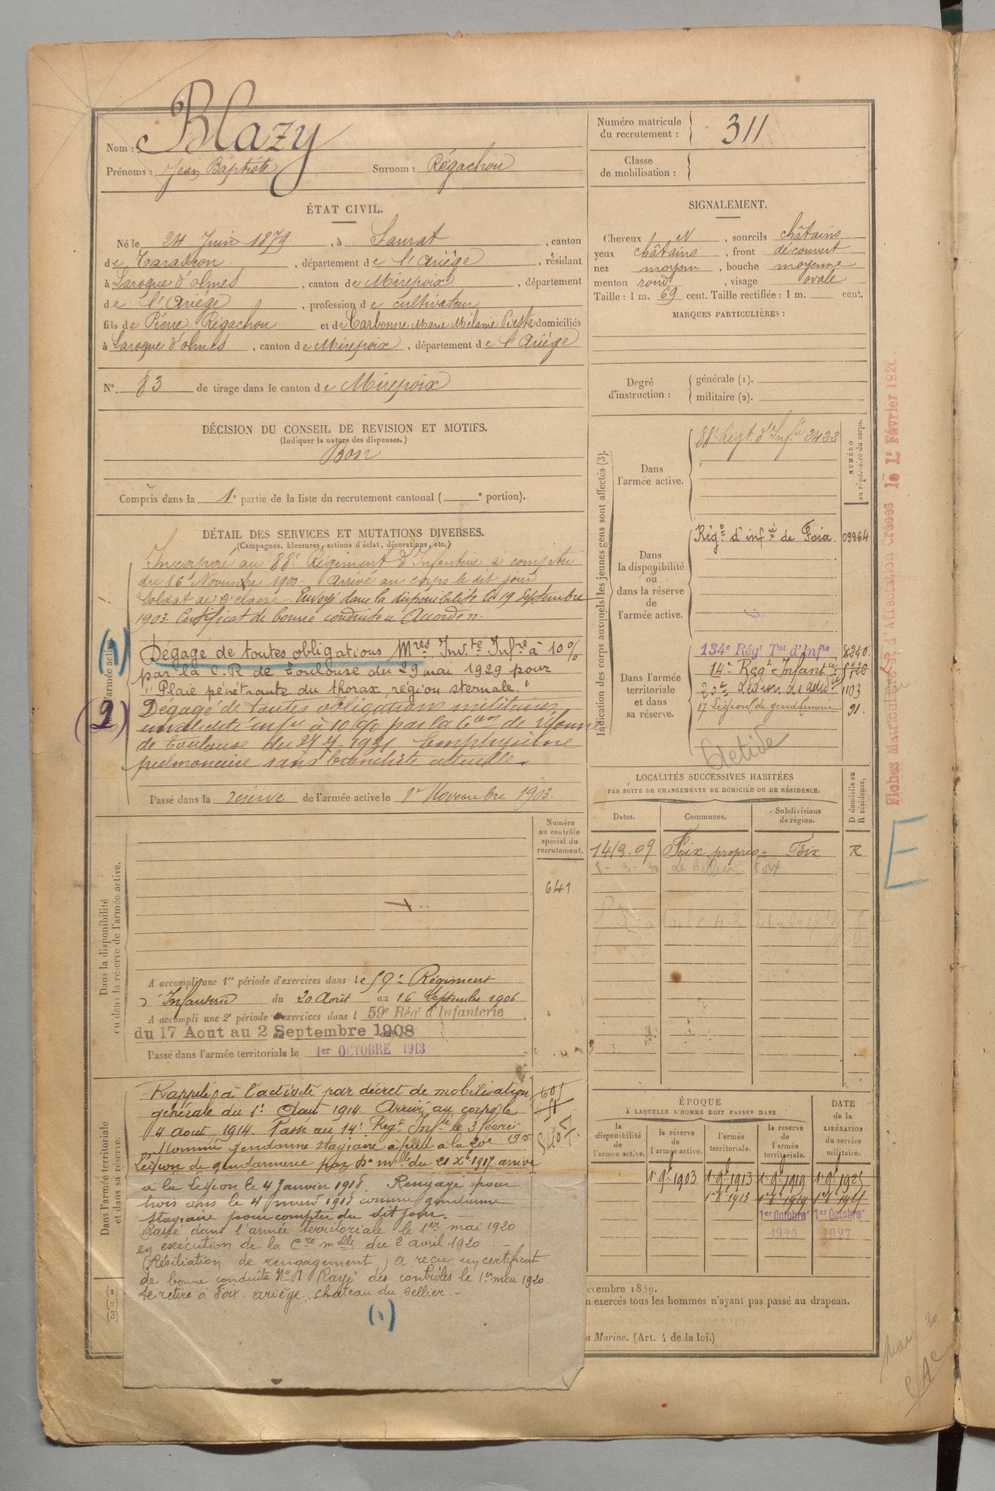 Nom : Blazy
Prénoms : Jean Baptiste Surnom : Régachou
ÉTAT CIVIL.
Né le 24 Juin 1879, à Saurat, canton
de Tarascon, département de l'Ariège, résidant
à Laroque d'olmes, canton de Mirepoix, département
de l'Ariège, profession de cultivateur
fils de Pierre Régachou et de Carbonne Marie Mélanie domiciliés
à Laroque d'olmes, canton de Mirepoix, département de l'Ariège
N° 83 de tirage dans le canton de Mirepoix
DÉCISION DU CONSEIL DE REVISION ET MOTIFS.
(Indiquer la nature des dispenses.)
Bon
Compris dans la 1e partie de la liste du recrutement cantonal ( e portion).
DÉTAIL DES SERVICES ET MUTATIONS DIVERSES.
(Campagnes, blessures, actions d'éclat, décorations, etc.)
Incorporé au 88e Régiment d'Infanterie à compter
du 16 Novembre 1900. Arrivé au corps le dit jour
Soldat de 2e classe. Envoyé dans la disponibilité le 19 Septembre
1903. Certificat de bonne conduite Accordé.
(1)
Dégagé de toutes obligations Mres Invte Infre à 10%
par la C.R de Toulouse du 29 mai 1929 pour
"Plaie pénétrante du thorax, région sternale."
(2)
Dégagé de toutes obligations militaires
invalidité infre à 10 % par la Con de réforme
de Toulouse du 1931 Emphysème
pulmonaire sans bacillose actuelle.
Passé dans la réserve de l'armée active le 1er Novembre 1903.
Dans la disponibilité
ou dans la réserve de l'armée active.
Numéro
au contrôle
spécial du
recrutement.
641
A accompli une 1re période d'exercices dans le 59e Régiment
d'Infanterie du 20 Août au 16 Septembre 1906
A accompli une 2e période d'exercices dans l 59e Régt d'Infanterie
du 17 Aout au 2 Septembre 1908
Passé dans l'armée territoriale le 1er OCTOBRE 1913
Dans l'armée territoriale
et dans sa réserve.
Rappelé à l'activité par décret de mobilisation
générale du 1er Août 1914. Arrivé au corps le
4 Aout 1914. Passé au 14e Regt Infie le 3 février 1915
Nommé gendarme stagiaire à pied à la 20e
Légion de gendarmerie par Don mlle du 21 Xbre 1917 arrivé
à la Légion le 4 Janvier 1918. Rengagé pour
trois ans le 4 1918 comme gendarme
stagiaire pour compter du dit jour.
Passé dans l'armée territoriale le 1er mai 1920
en exécution de la Cre mlle du 2 avril 1920
(Résiliation de rengagement) A reçu un certificat
de bonne conduite N° 1 Rayé des contrôles le 1er mai 1920
Se retire à Foix ariège, château du Sellier.
(1)
Numéro matricule
du recrutement : 311
Classe
de mobilisation :
SIGNALEMENT.
Cheveux N, sourcils châtains
yeux châtains, front découvert
nez moyen, bouche moyenne
menton rond, visage ovale
Taille : 1 m. 69 cent. Taille rectifiée : 1 m. cent.
MARQUES PARTICULIÈRES :
Degré
d'instruction : générale (1).
militaire (2).
Indication des corps auxquels les jeunes gens sont affectés (3).
NUMÉRO
au répertoire du corps.
Dans
l'armée active.
88e Régt. d'Infie 2433
Dans
la disponibilité
ou
dans la réserve
de
l'armée active.
Régt d'infie de Foix. 09964
Dans l'armée
territoriale
et dans
sa réserve.
134e Régt Tal d'Infie 8240
14e Regt Infanterie
1103
17 Légion de gendarmerie 21.
Active
LOCALITÉS SUCCESSIVES HABITÉES
PAR SUITE DE CHANGEMENTS DE DOMICILE OU DE RÉSIDENCE.
D domicile ou
R résidence.
Dates. Communes. Subdivisions
de région.
14/2.09 Foix Foix R
ÉPOQUE
À LAQUELLE L'HOMME DOIT PASSER DANS
la
disponibilité
de
l'armée active.
la réserve
de
l'armée active.
l'armée
territoriale.
la réserve
de
l'armée
territoriale.
DATE
de la
LIBÉRATION
du service
militaire.
1er 9bre 1903 1er 9bre 1913 1er 9bre 1919 1er 9bre 1925
1er Octobre 1er Octobre
1920 1927
décembre 1889.
n exercés tous les hommes n'ayant pas passé au drapeau.
a Marine. (Art. 4 de la loi.)
Fiches Matricules d'Affectation Créées le 1er Février 192
E